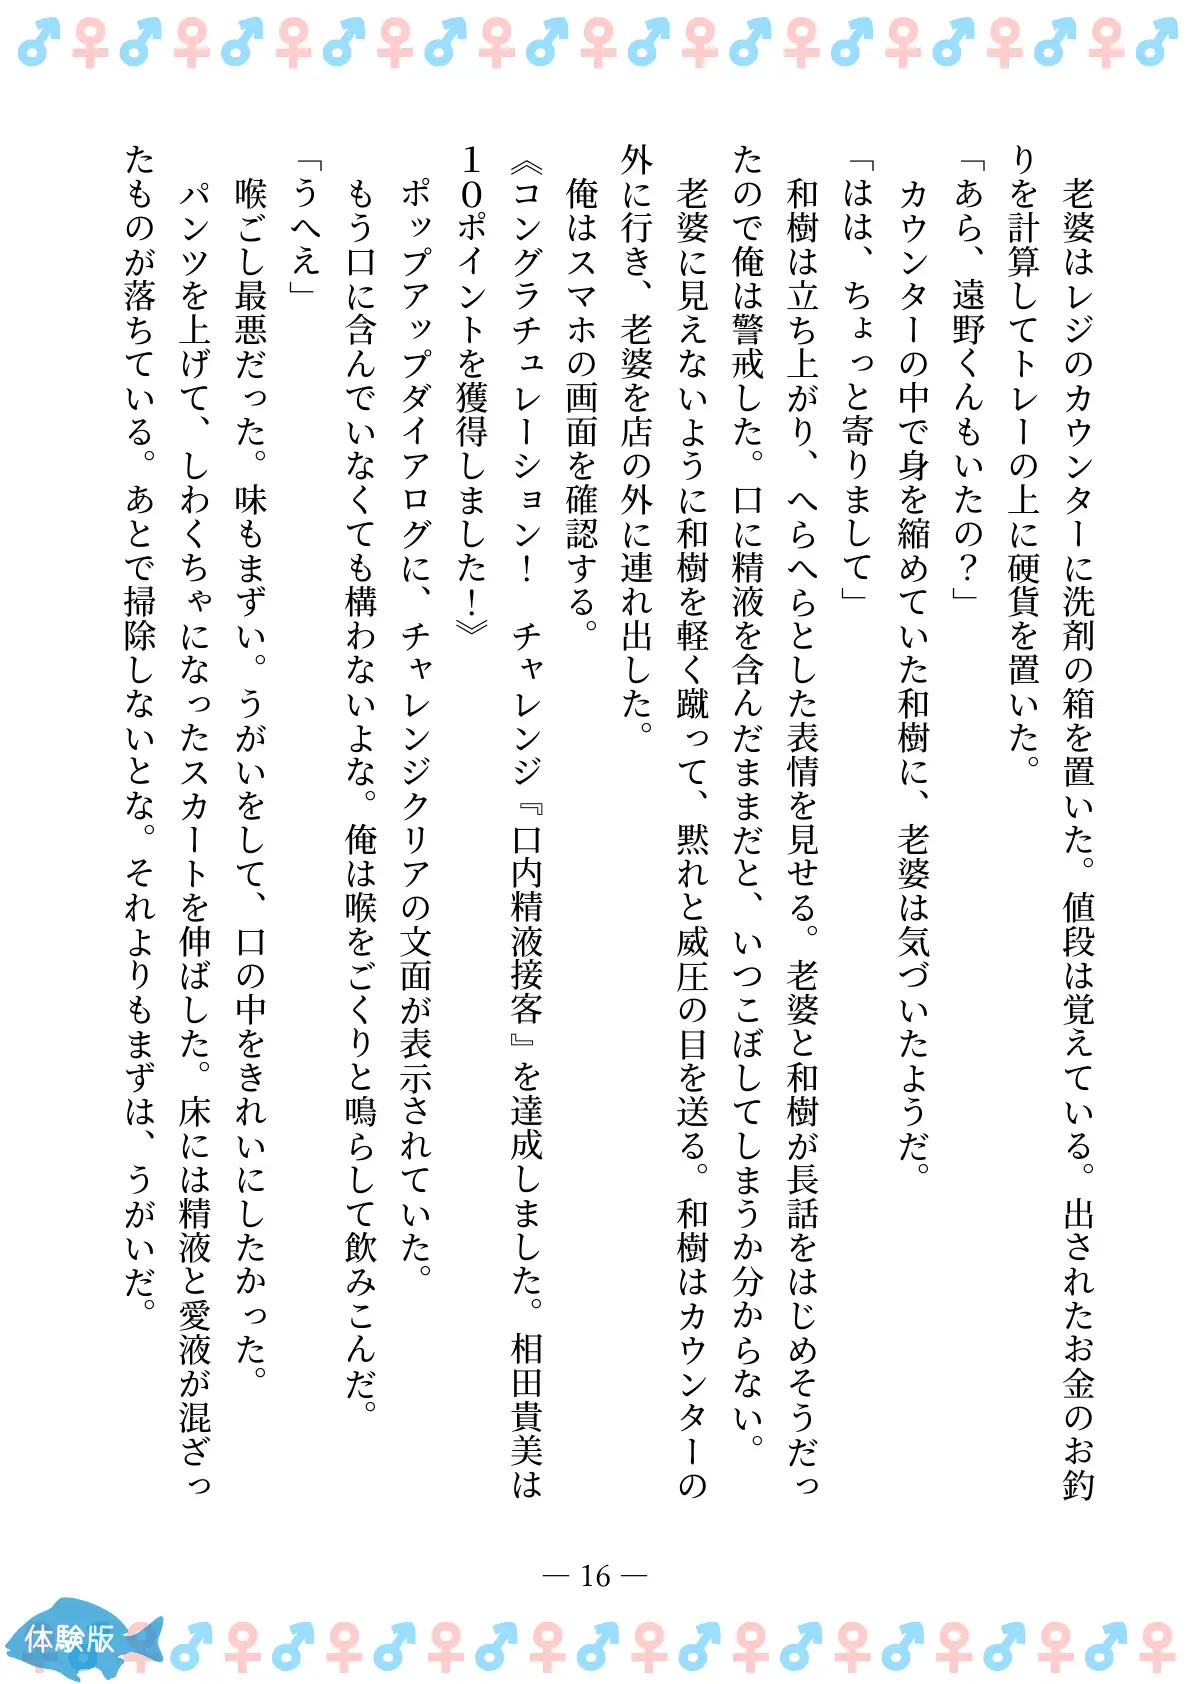 老婆はレジのカウンターに洗剤の箱を置いた。値段は覚えている。出されたお金のお釣
りを計算してトレーの上に硬貨を置いた。
「あら、遠野くんもいたの？」
カウンターの中で身を縮めていた和樹に、老婆は気づいたようだ。
「はは、ちょっと寄りまして」
和樹は立ち上がり、へらへらとした表情を見せる。老婆と和樹が長話をはじめそうだっ
たので俺は警戒した。口に精液を含んだままだと、いつこぼしてしまうか分からない。
老婆に見えないように和樹を軽く蹴って、黙れと威圧の目を送る。和樹はカウンターの
外に行き、老婆を店の外に連れ出した。
俺はスマホの画面を確認する。
《コングラチュレーション！　チャレンジ『口内精液接客』を達成しました。相田貴美は
１０ポイントを獲得しました！》
ポップアップダイアログに、チャレンジクリアの文面が表示されていた。
もう口に含んでいなくても構わないよな。俺は喉をごくりと鳴らして飲みこんだ。
「うへえ」
喉ごし最悪だった。味もまずい。うがいをして、口の中をきれいにしたかった。
パンツを上げて、しわくちゃになったスカートを伸ばした。床には精液と愛液が混ざっ
たものが落ちている。あとで掃除しないとな。それよりもまずは、うがいだ。
― 16 ―
体験版